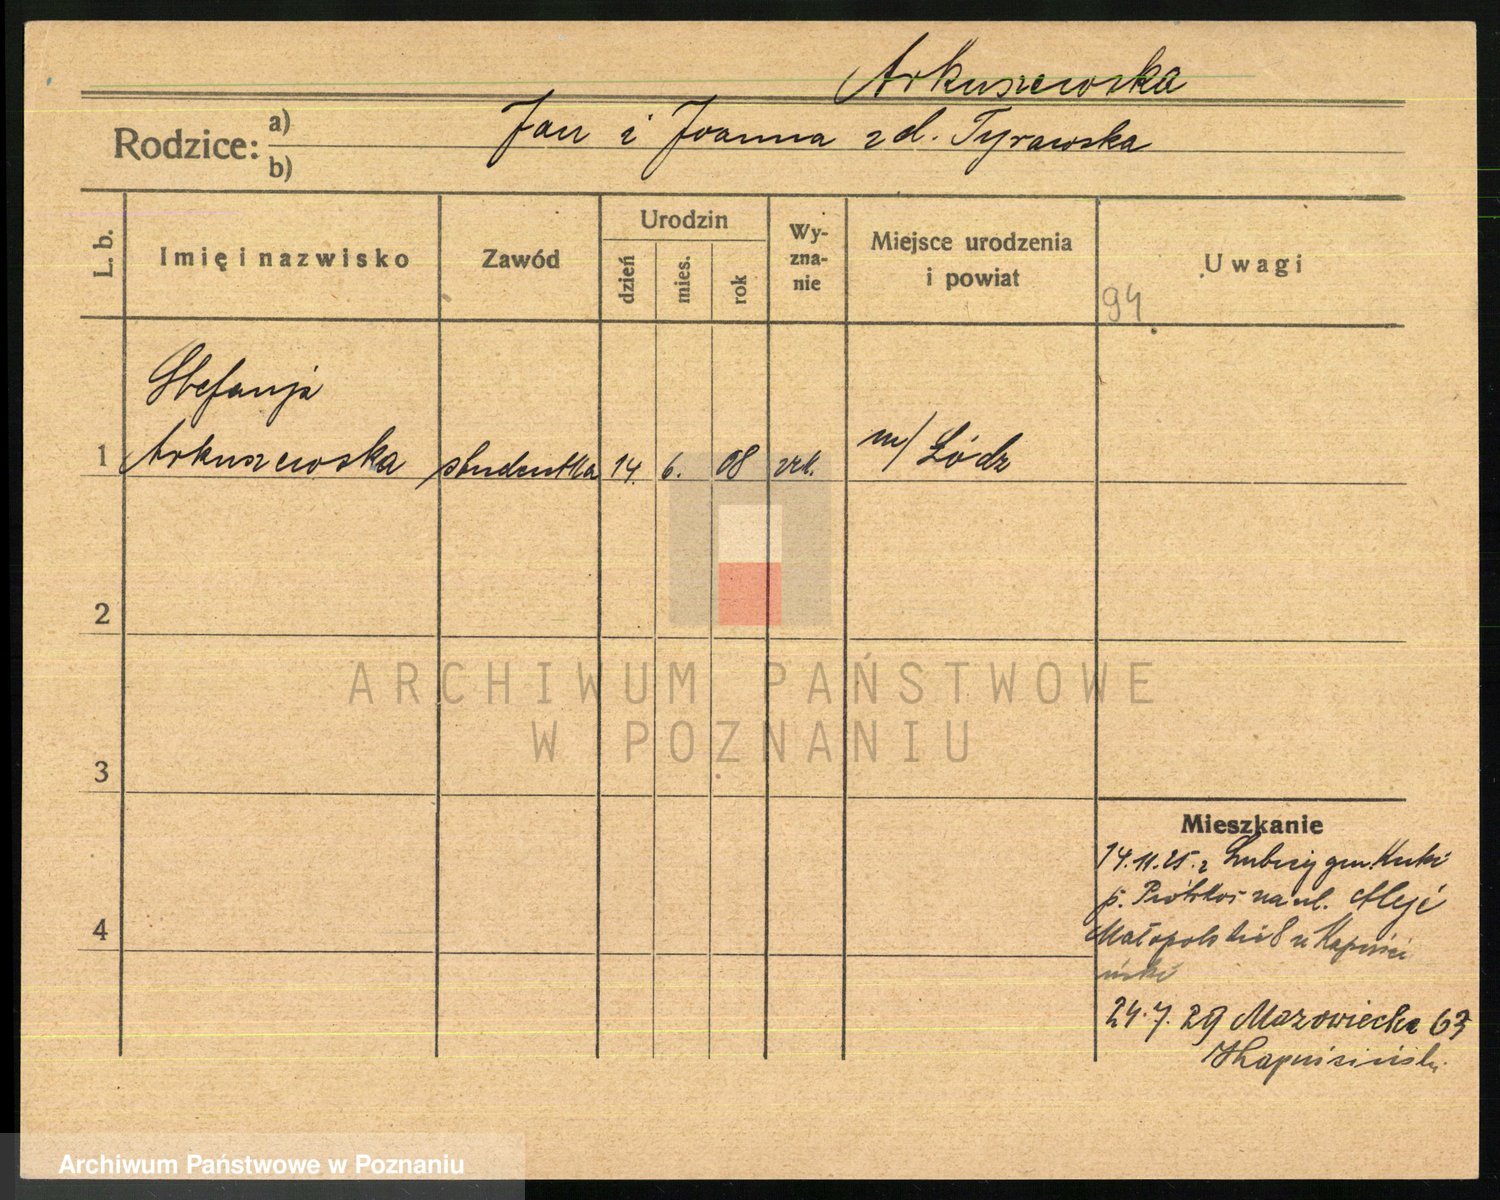 Arkuszewska
Rodzice: a) b) Jan i Joanna zd. Tyrawska
L. b.
Imię i nazwisko
Zawód
Urodzin
dzień
mies.
rok
Wy-
zna-
nie
Miejsce urodzenia
i powiat
Uwagi
94
Stefanja
1 Arkuszewska studentka 14. 6. 08 rzk. m/ Łódz
2
3
4
ARCHIWUM PAŃSTWOWE
W POZNANIU
Mieszkanie
14.11.25. z gm.
p. na ul. Aleje
Małopolskie 8 u Kapuści
ński
24.7.29 Mazowiecka 63
Kapuściński
Archiwum Państwowe w Poznaniu